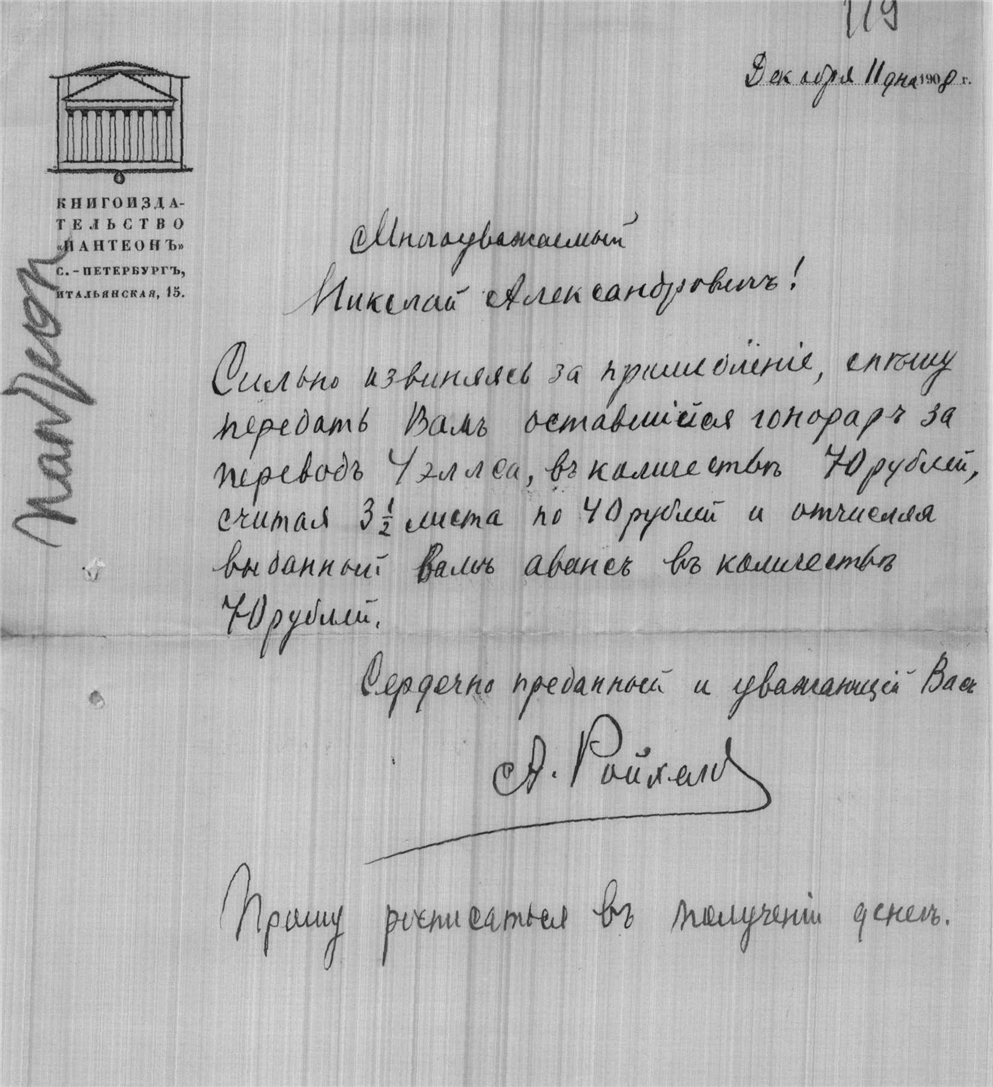 119
Декабря 11 дня 1908 г.
КНИГОИЗДА-
ТЕЛЬСТВО
«ПАНТЕОНЪ»
С.-ПЕТЕРБУРГЪ,
ИТАЛЬЯНСКАЯ, 15.
Пантеон
Многоуважаемый
Николай Александровичъ!
Сильно извиняясь за промедленіе, спѣшу
передать Вамъ оставшійся гонораръ за
переводъ Уэллса, въ количествѣ 70 рублей,
считая 3 1/2 листа по 40 рублей и отчисляя
выданный Вамъ авансъ въ количествѣ
70 рублей.
Сердечно преданный и уважающій Васъ
А. Ройхель
Прошу росписаться въ полученіи денегъ.